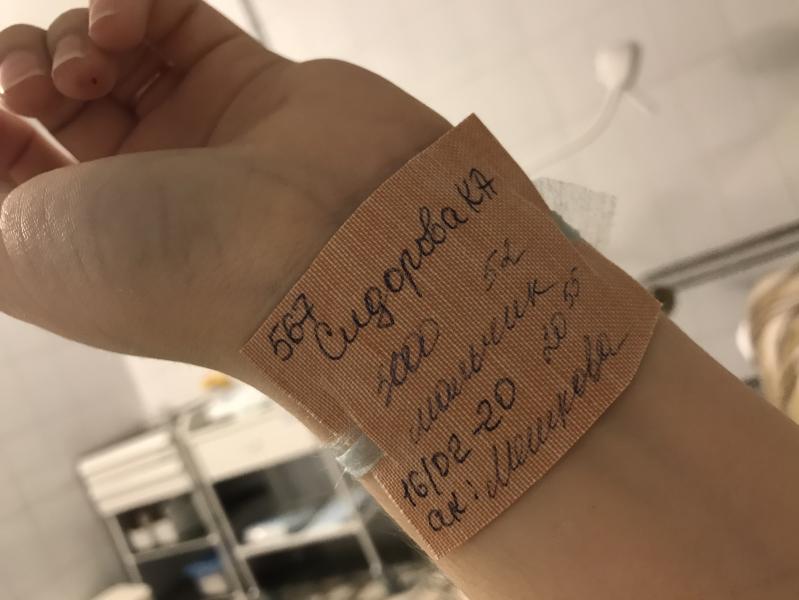 567
Сидорова КА
3000 52
мальчик
16/02-20 20 55
ак: Мошкова